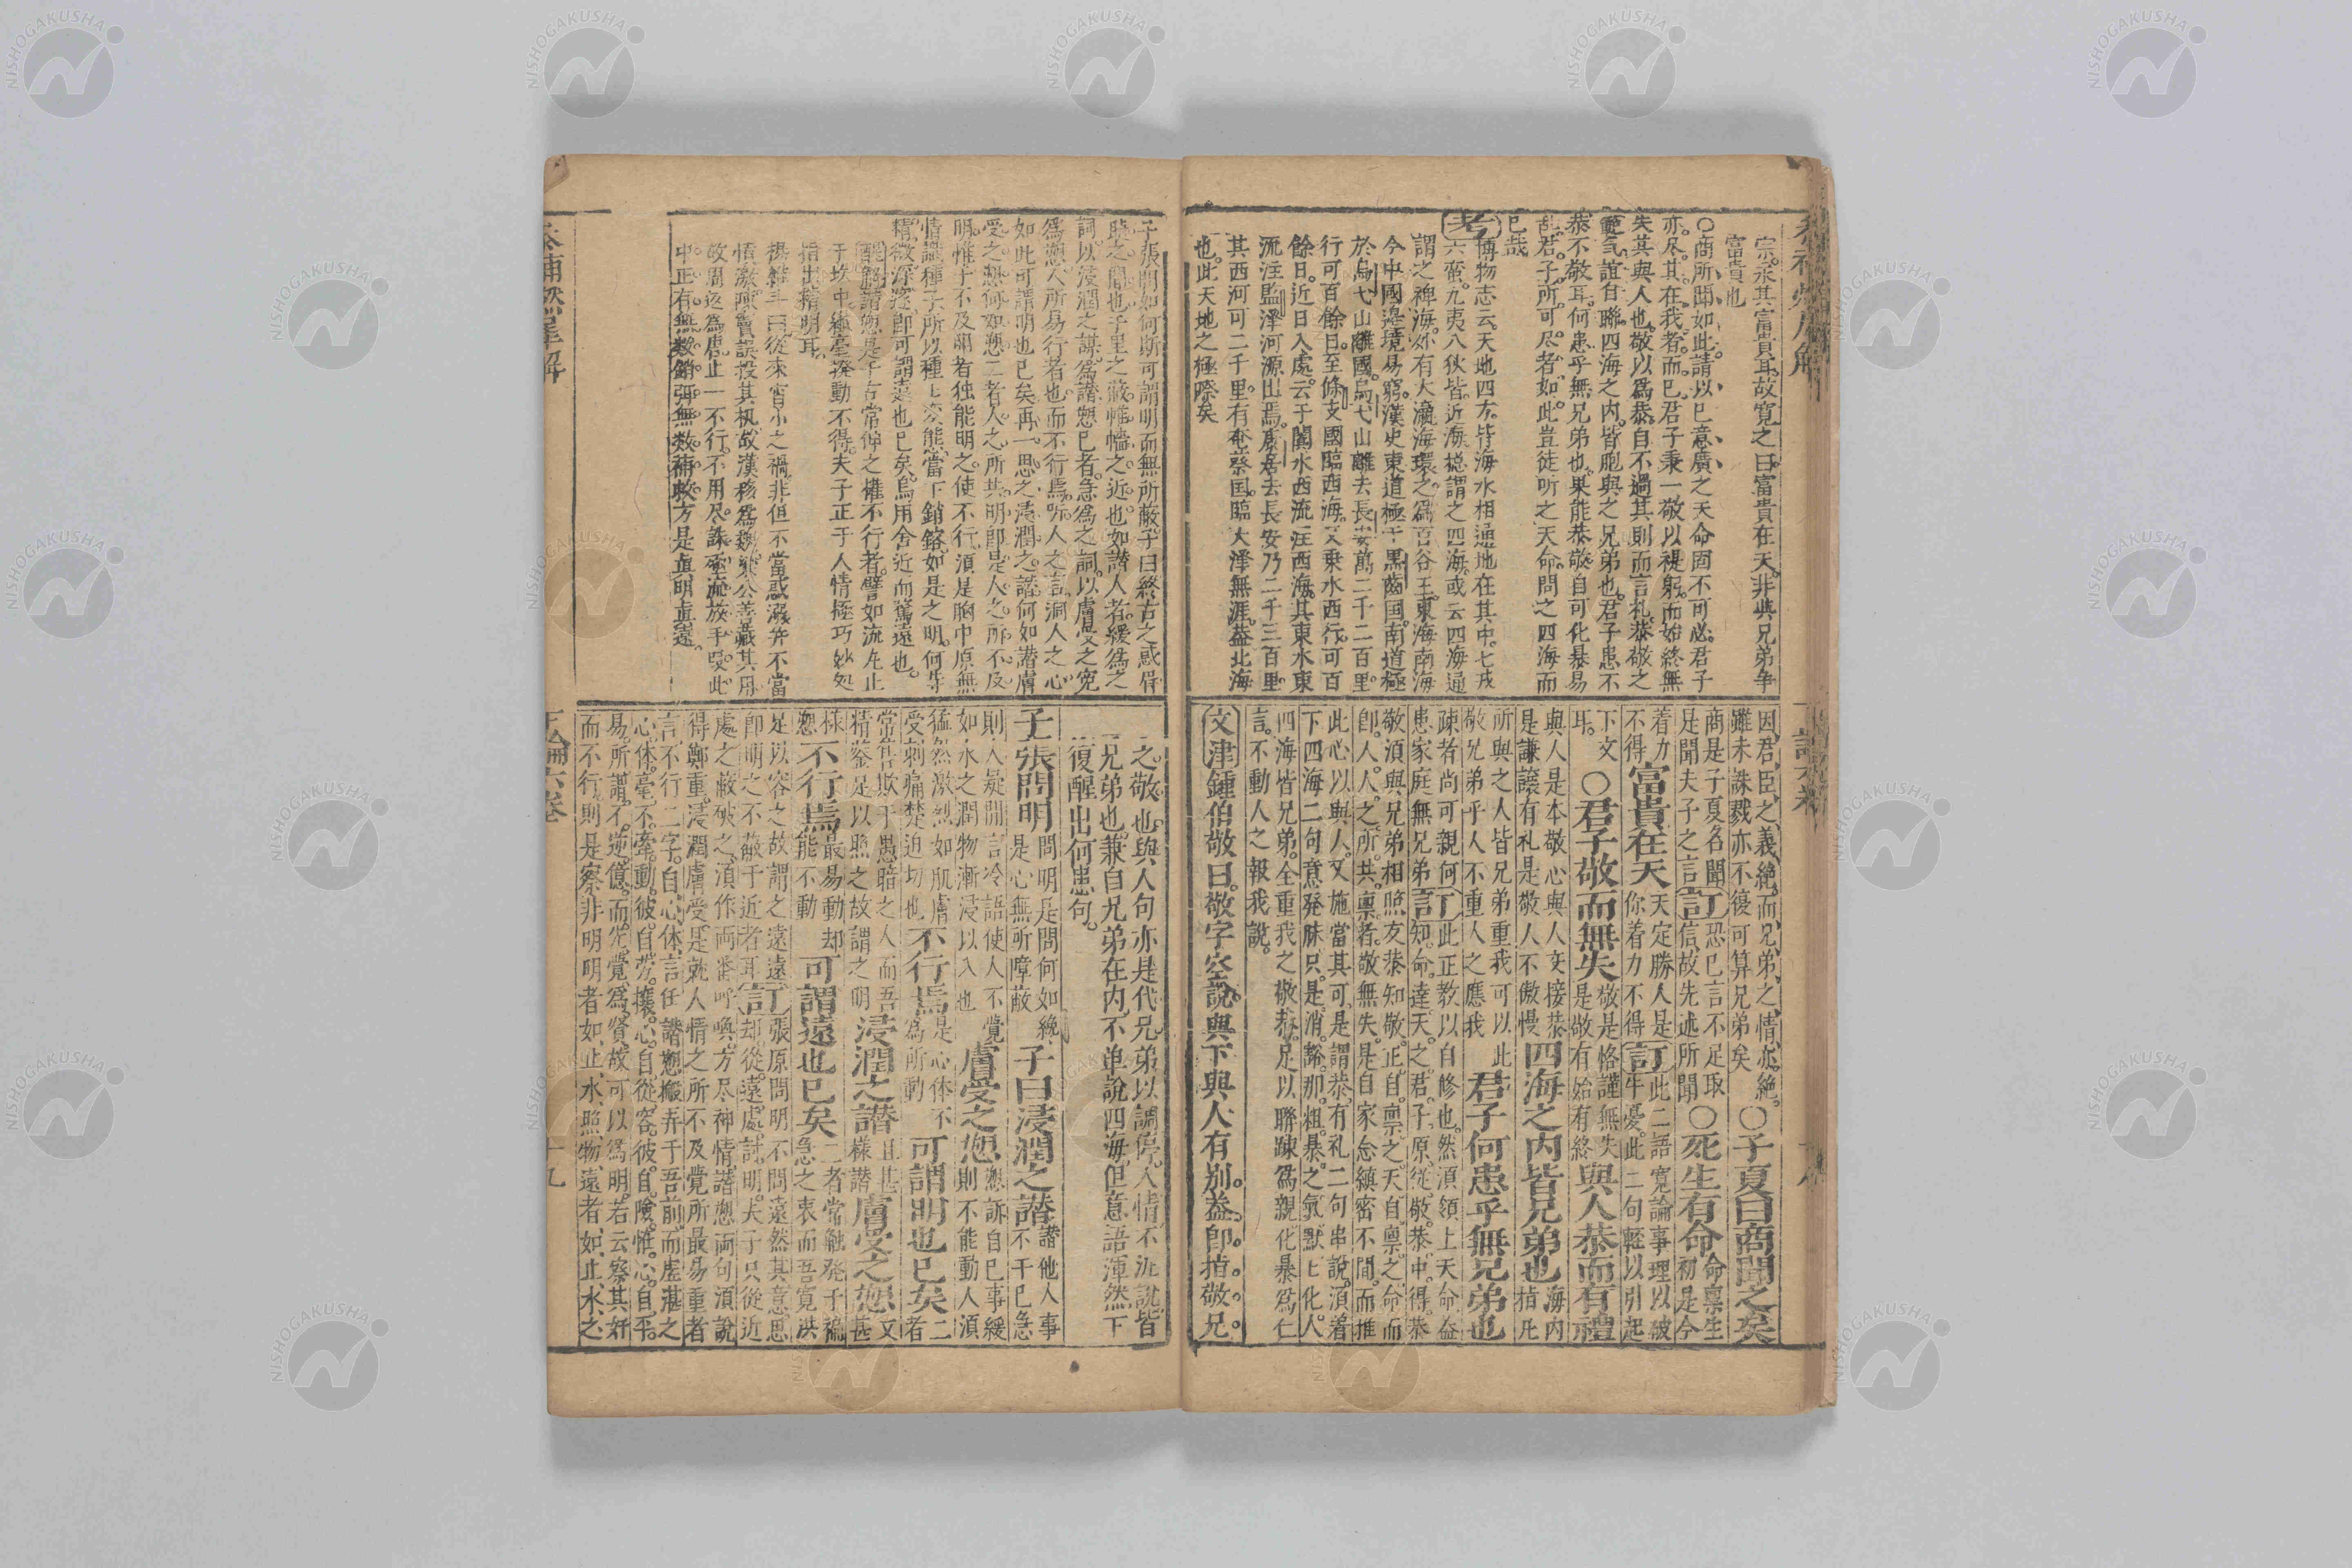 宗。永其富貴耳。故寬之曰。富貴在天。非與兄弟爭
富貴也
○商所聞如此。請以己意廣之。天命固不可必。君子
亦尽。其在我者而已。君子秉一敬以禔躬。而始終無
失其與人也。敬以爲恭。自不過其則而言礼。恭敬之
範。氣誼自聯。四海之内。皆胞與之兄弟也。君子患不
恭不敬耳。何患乎無兄弟也。果能恭敬。自可化暴易
乱。君子。所可尽者。如此。豈徒听之天命。問之四海而
已哉
考 博物志云。天地四方。皆海水相通。地在其中。七戎
六蛮。九夷八狄。皆近海。総謂之四海。或云四海通
謂之裨海。外有大瀛海環之。爲百谷王。東海南海
今中國邊境易窮。漢史東道極于黒齒国。南道極
於烏弋山離國。烏弋山離去長安萬二千二百里。
行可百餘日。至條支國臨西海。又乗水西行。可百
餘日。近日入處。云于闐水西流注西海。其東水東
流注監泽。河源出焉。康居去長安乃二千三百里。
其西河可二千里。有奄蔡国。臨大泽無涯。葢北海
也。此天地之極際矣
因君臣之義絶。而兄弟之情亦絶。○子夏曰商聞之矣
雖未誅戮亦不復可算兄弟矣
商是子夏名聞
是聞夫子之言 訂 恐已言不足取
信。故先述所聞 ○死生有命 命禀生
初是今
着力
不得 富貴在天 天定勝人是
你着力不得 訂 此二語寬論事理以破
牛憂。此二句輕以引起
下文
耳。 ○君子敬而無失 敬是恪謹無失
是敬有始有終 與人恭而有禮
與人是本敬心與人交接恭
是謙譲有礼是敬人不傲慢 四海之内皆兄弟也 海内
指凡
所與之人皆兄弟重我可以此
敬兄弟乎人不重人之應我 君子何患乎無兄弟也
疎者尚可親何
患家庭無兄弟 訂 此正教以自修也。然須領上天命。葢
知命。達天。之君。子。原。従。敬。恭。中。得。恭
敬須與兄弟相照。友恭知敬。正自禀之天。自禀之命。而
即人人之所。共禀者。敬無失。是自家怠縝密不間。而推
此心以與人。又施當其可。是謂恭有礼二句串說。須着
下四海二句意発脉。只。是。消。豁。那。粗。暴。之。氣。默。上。化。人。
四海皆兄弟。全重我之敬恭。足以聯疎爲親。化暴爲仁
言。不動人之報我說。
文津 鍾伯敬曰。敬字空說。與下與人有别。葢。即。指。敬。兄。
之。敬。也與人句。亦是代兄弟以調停。人情不泚說皆
兄弟也。兼自兄弟在内。不单說四海。但意語渾然。下
復醒出何患句。
子張問明 問明是問何如纔
是心無所障蔽 子曰浸潤之譖 譖他人事
不干己急
則人疑開言冷語使人不覺
如水之潤物漸浸以入也 膚受之愬 愬訴自己事緩
則不能動人須
猛然激烈如肌膚
受刺痛楚迫切也 不行焉 是心体不
爲所動 可謂明也已矣 二
者
常售欺于愚暗之人而吾
精鉴足以照之故謂之明 浸潤之譖 且甚
様譖 膚受之愬 又
甚
様
愬 不行焉 最易動却
能不動 可謂遠也已矣 二者常触発于褊
急之衷而吾寛洪
足以容之故謂之遠遠
即明之不蔽于近者耳 訂 張原問明不問遠。然其意思
却。從。遠處討明。夫子只從近
處之蔽破之。須作両番呼喚。方尽神情。譖愬両句須說
得鄭重。浸潤膚受。是就人情之所不及覺。所最易重者
言。不行二字。自心体言。任譖愬搬弄于吾前。而虚湛之
心。体。毫。不。牽。動。彼。自。労。攘。心。自。從。容。彼。自。険。惟。心。自。平。
易。所謂不。逆億。而。先。覺。爲。賢。故可以爲明。若云察其奸
而不行。則是察非明。明者如止水。照物。遠者如止水之
子張問如何斯可謂明而無所蔽。子曰終古之惑。俱
聴之間也。子里之蔽。帷幢之近也。如譖人者。緩爲之
詞。以浸潤之謀爲譖。愬已者。急爲之詞。以膚受之寃
爲愬。人所易行者也。而不行焉。听人之言。洞人之心
如此可謂明也已矣。再一思之。浸潤之譖何如。譖膚
受之愬何如。愬二者人之所共明。即是人之所不及
明。惟于不及明者独能明之。使不行。須是胸中原無
情識種子。所以種上交態。當下銷鎔。如是之明。何等
精微深遠。即可謂遠也已矣。烏用舍近而騖遠也。
醒解 譖愬是千古常伸之權。不行者。譬如流左止
于坎中。纖毫撥動不得。夫子正于人情極巧妙処
指出精明耳。
楊維斗曰。從來宵小之禍。非但不當惑溺。并不當
憤激。陳竇誤投其机。故漢移爲魏。狄公善蔵其用
故周返爲唐。止一不行。不用尽誅亟流放手段。此
中正有無数銷弭。無数補救。方是直明直遠。
十九